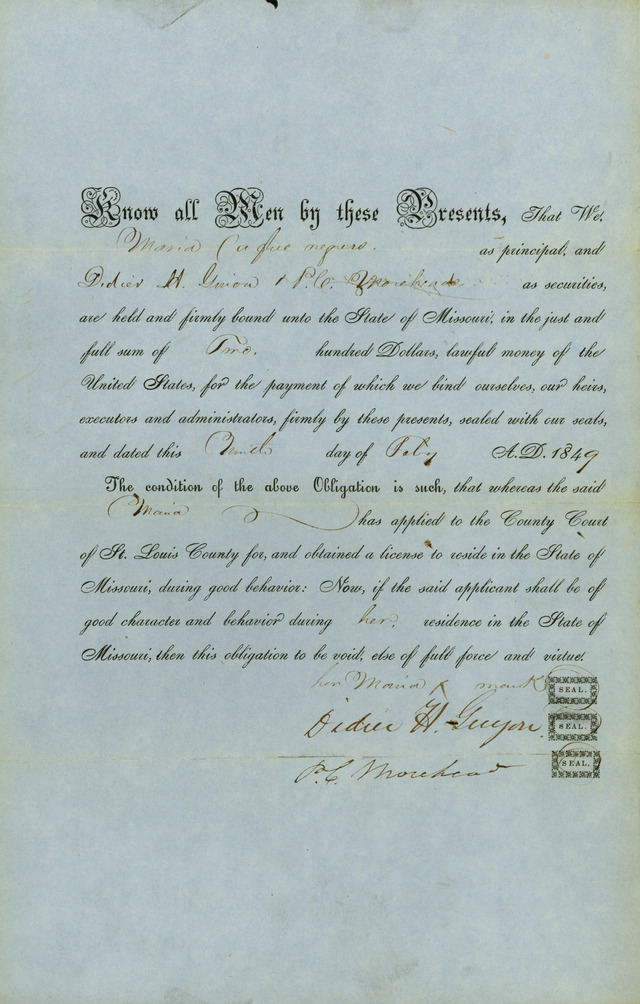 Know all Men by these Presents, That We,
Maria (a free negro. as principal, and
Didier H. & P.C. Morehead as securities,
are held and firmly bound unto the State of Missouri, in the just and
full sum of Two. hundred Dollars, lawful money of the
United States, for the payment of which we bind ourselves, our heirs,
executors and administrators, firmly by these presents, sealed with our seals,
and dated this Ninth day of Feby A.D. 1849
The condition of the above Obligation is such, that whereas the said
Maria has applied to the County Court
of St. Louis County for, and obtained a license to reside in the State of
Missouri, during good behavior: Now, if the said applicant shall be of
good character and behavior during her. residence in the State of
Missouri, then this obligation to be void, else of full force and virtue.
her Maria x mark SEAL.
Didier H. Guyon. SEAL.
P.C. Morehead SEAL.